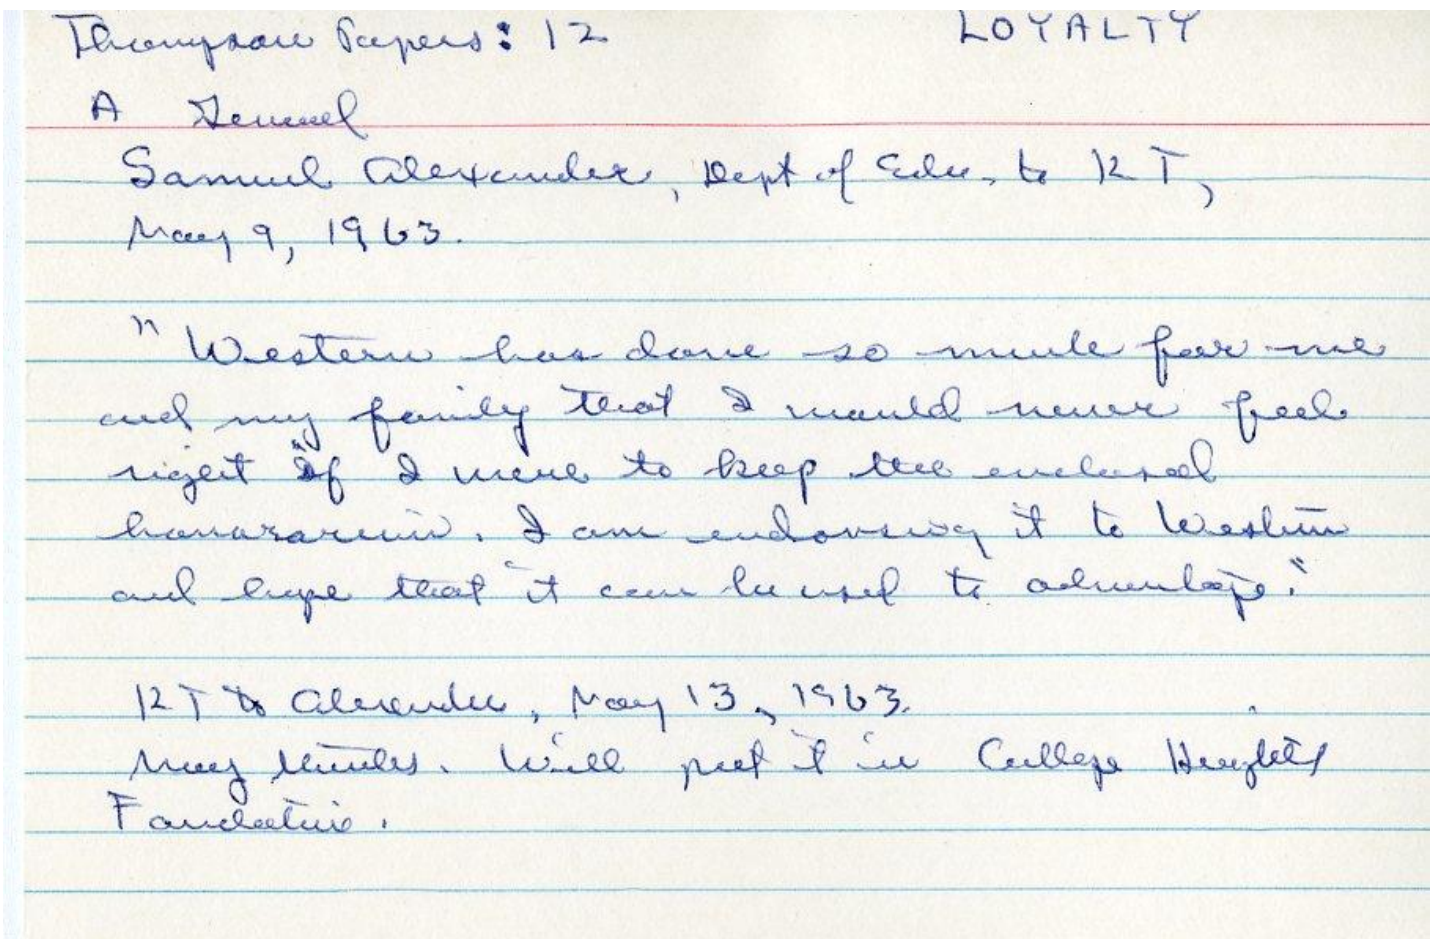 Thompson Papers: 12 LOYALTY
A
Samuel Alexander, Dept of Educ. to KT,
May 9, 1963.
"Western has done so much for me
and my family that I would never feel
right if I were to keep the enclosed
honorarium. I am endorsing it to Western
and hope that it can be used to advantage."
KT to Alexander, May 13, 1963.
Many thanks. Will put it in College Heights
Foundation.